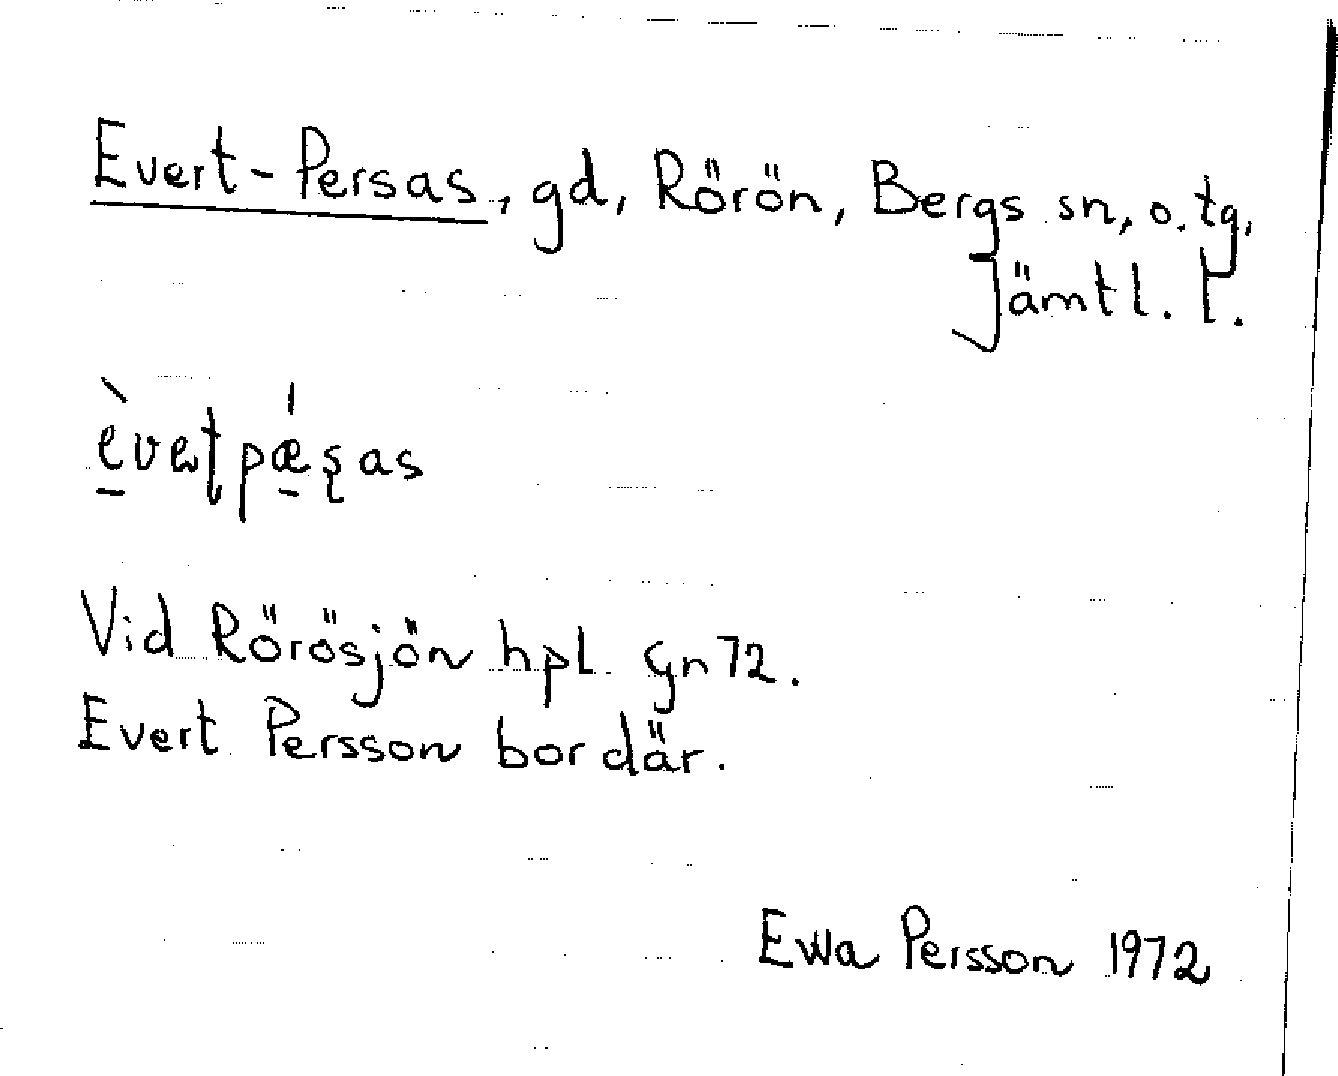 Evert-Persas, gd, Rörön, Bergs sn, o. tg,
Jämtl. l.
Vid Rörösjön hpl Gn 72.
Evert Persson bor där.
Ewa Persson 1972